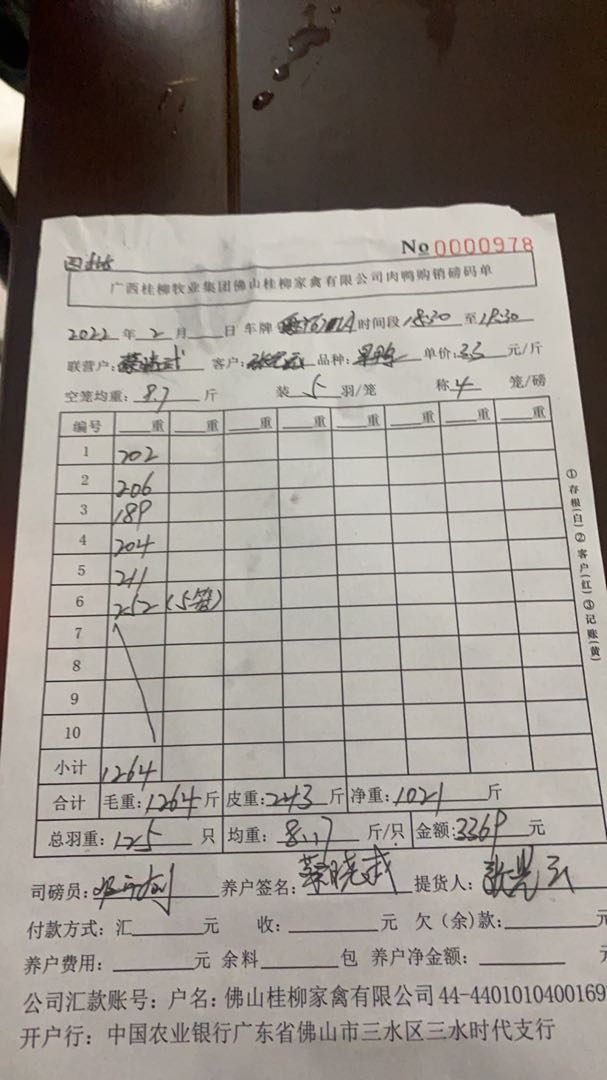 No 0000978
广西桂柳牧业集团佛山桂柳家禽有限公司肉鸭购销磅码单
2022 年 2 月 日 车牌 时间段 18:30 至 19:30
联营户: 客户: 品种: 单价: 3.3 元/斤
空笼均重: 8.7 斤 装 5 羽/笼 称 4 笼/磅
编号 重 重 重 重 重 重 重 重
1 202
2 206
3 189
4 204
5 211
6 252 (5笼)
7
8
9
10
小计 1264
合计 毛重: 1264 斤 皮重: 243 斤 净重: 1021 斤
总羽重: 125 只 均重: 8.17 斤/只 金额: 3369 元
司磅员: 养户签名: 蔡晓武 提货人:
付款方式: 汇 元 收: 元 欠(余)款: 元
养户费用: 元 余料 包 养户净金额: 元
公司汇款账号: 户名: 佛山桂柳家禽有限公司 44-4401010400169
开户行: 中国农业银行广东省佛山市三水区三水时代支行
①存根(白)②客户(红)③记账(黄)